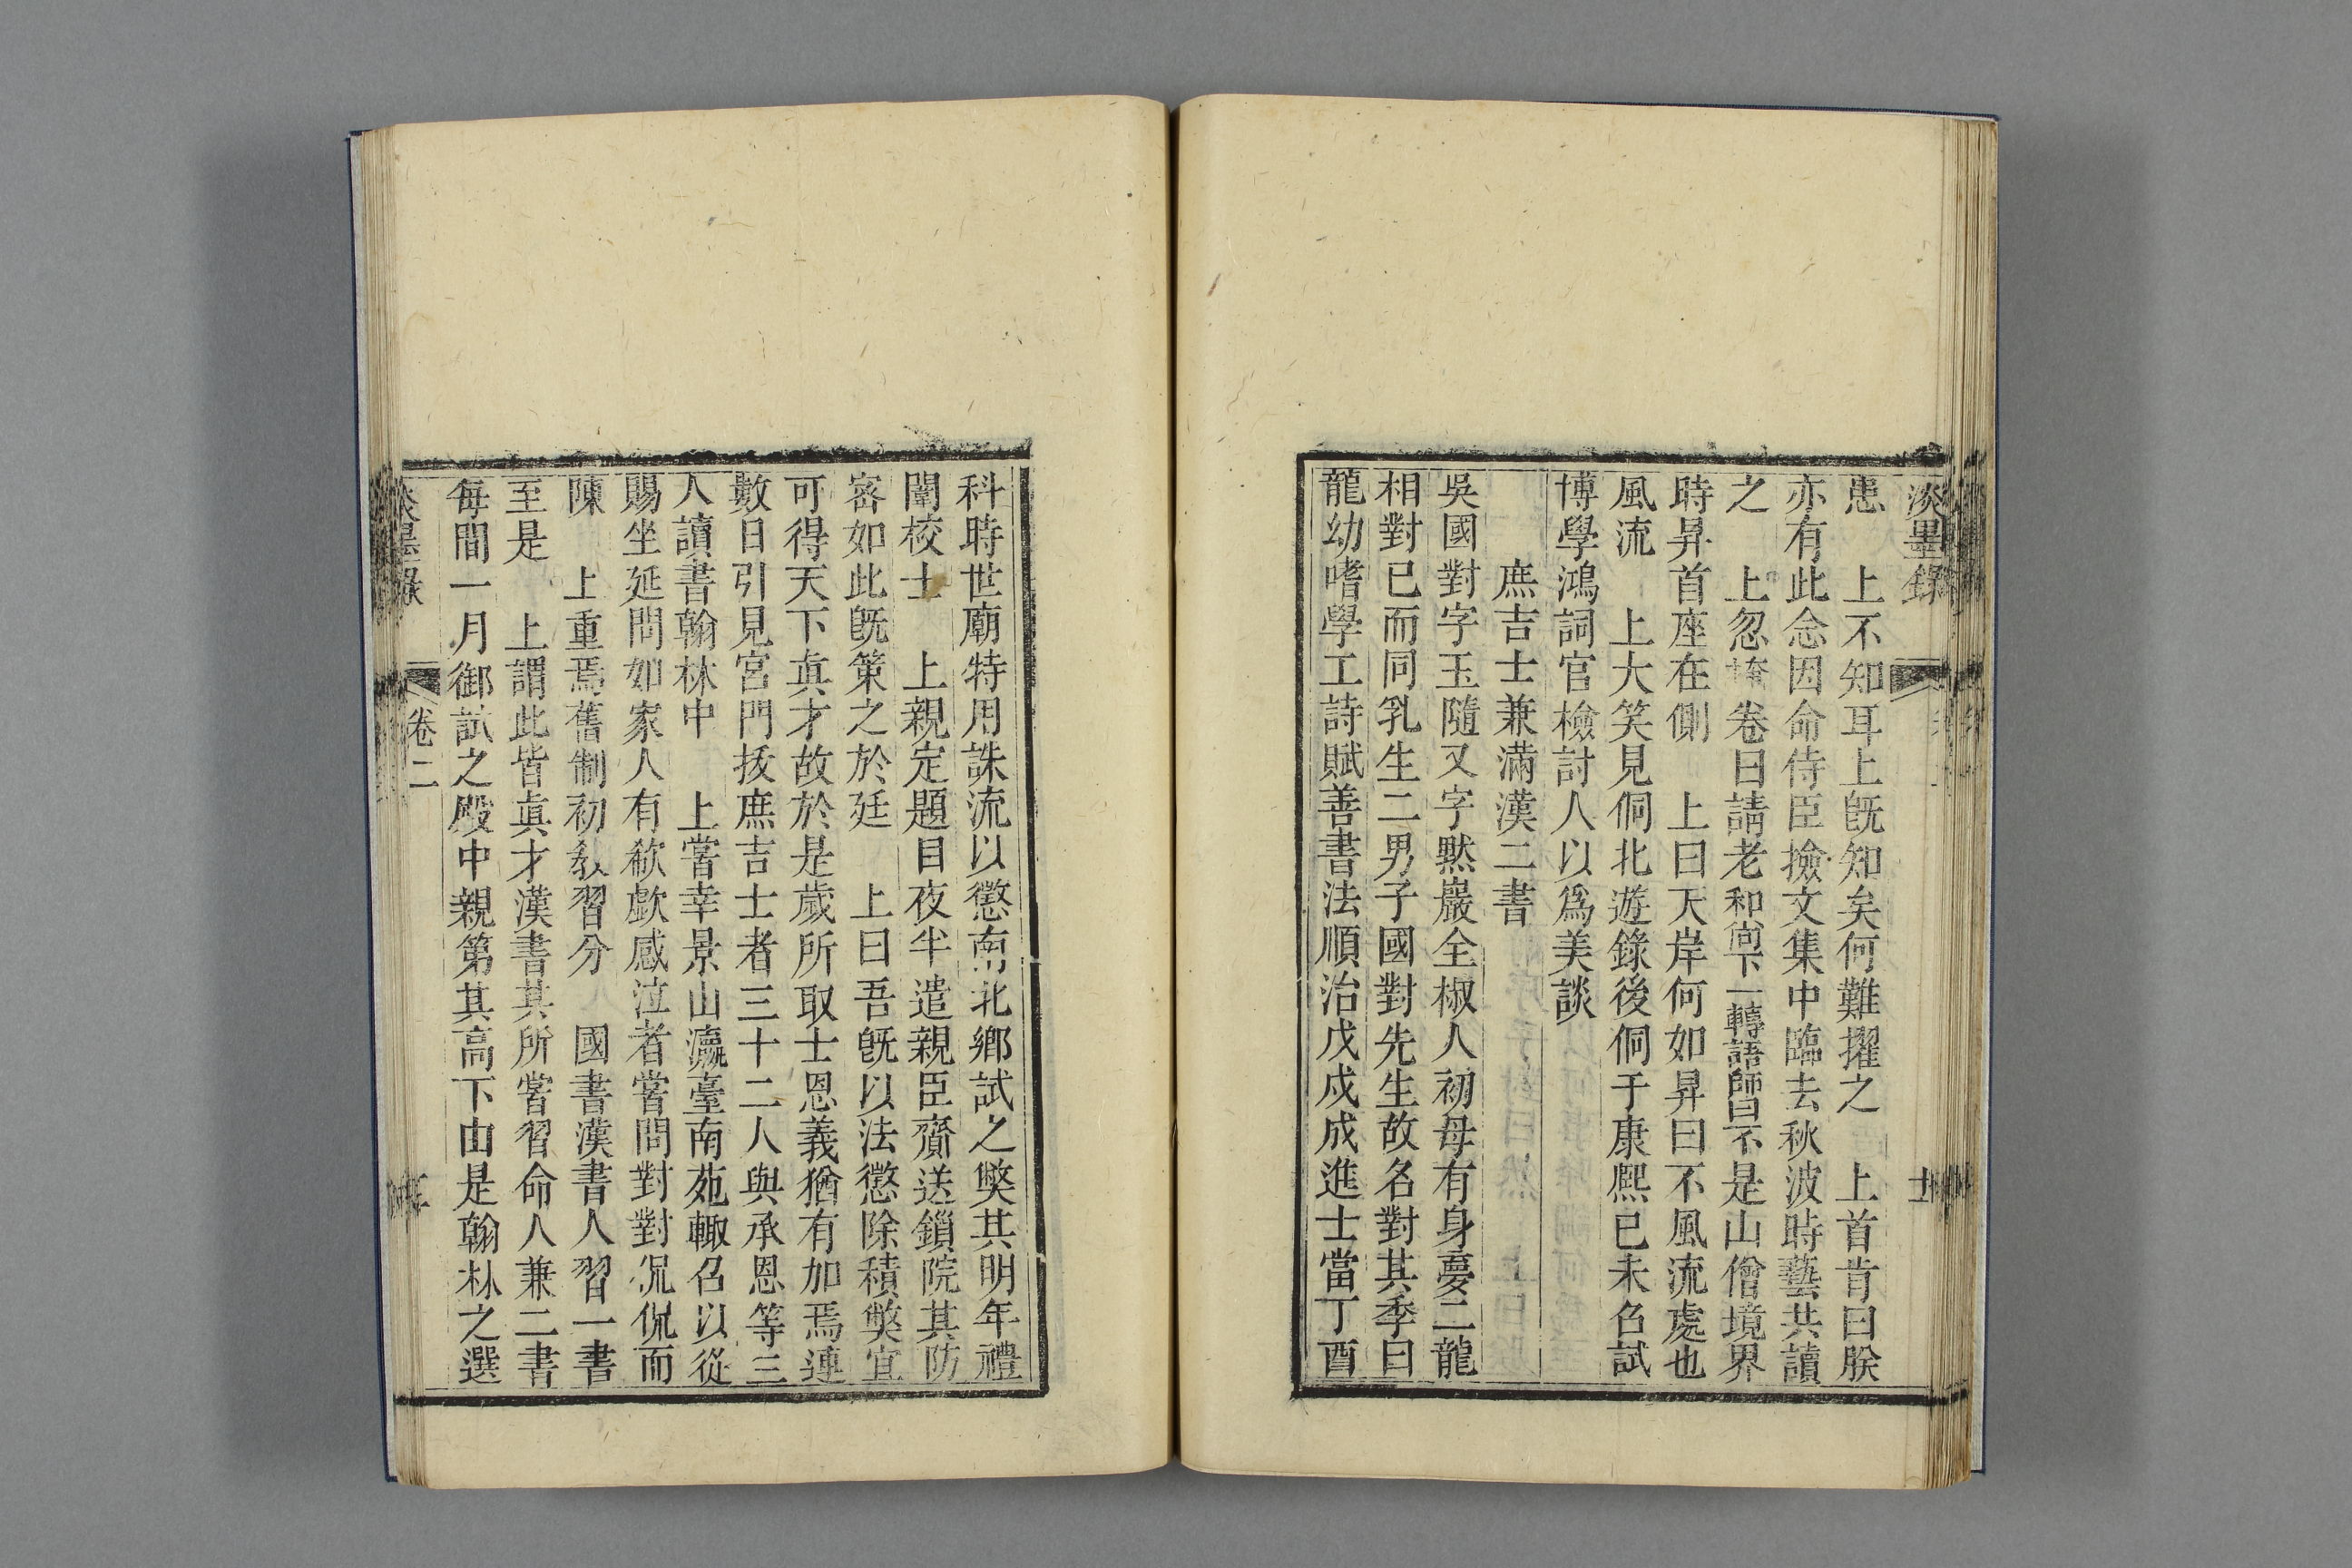 淡墨錄
患　上不知耳上旣知矣何難擢之　上首肯曰朕
亦有此念因命侍臣撿文集中臨去秋波時藝共讀
之　上忽掩卷曰請老和尙下一轉語師曰不是山僧境界
時昇首座在側　上曰天岸何如昇曰不風流處也
風流　上大笑見侗北遊錄後侗于康熙已未召試
博學鴻詞官檢討人以爲美談
庶吉士兼滿漢二書
吳國對字玉隨又字默巖全椒人初母有身夣二龍
相對已而同乳生二男子國對先生故名對其季曰
龍幼嗜學工詩賦善書法順治戊戌成進士當丁酉
科時世廟特用誅流以懲南北鄉試之獘其明年禮
闈校士　上親定題目夜半遣親臣齎送鎖院其防
密如此旣策之於廷　上曰吾旣以法懲除積獘宜
可得天下眞才故於是歲所取士恩義猶有加焉連
數日引見宮門拔庶吉士者三十二人與承恩等三
人讀書翰林中　上嘗幸景山瀛臺南苑輙召以從
賜坐延問如家人有欷歔感泣者嘗問對對侃侃而
陳　上重焉舊制初敎習分　國書漢書人習一書
至是　上謂此皆眞才漢書其所嘗習命人兼二書
每間一月御試之殿中親第其高下由是翰林之選
淡墨錄　卷二